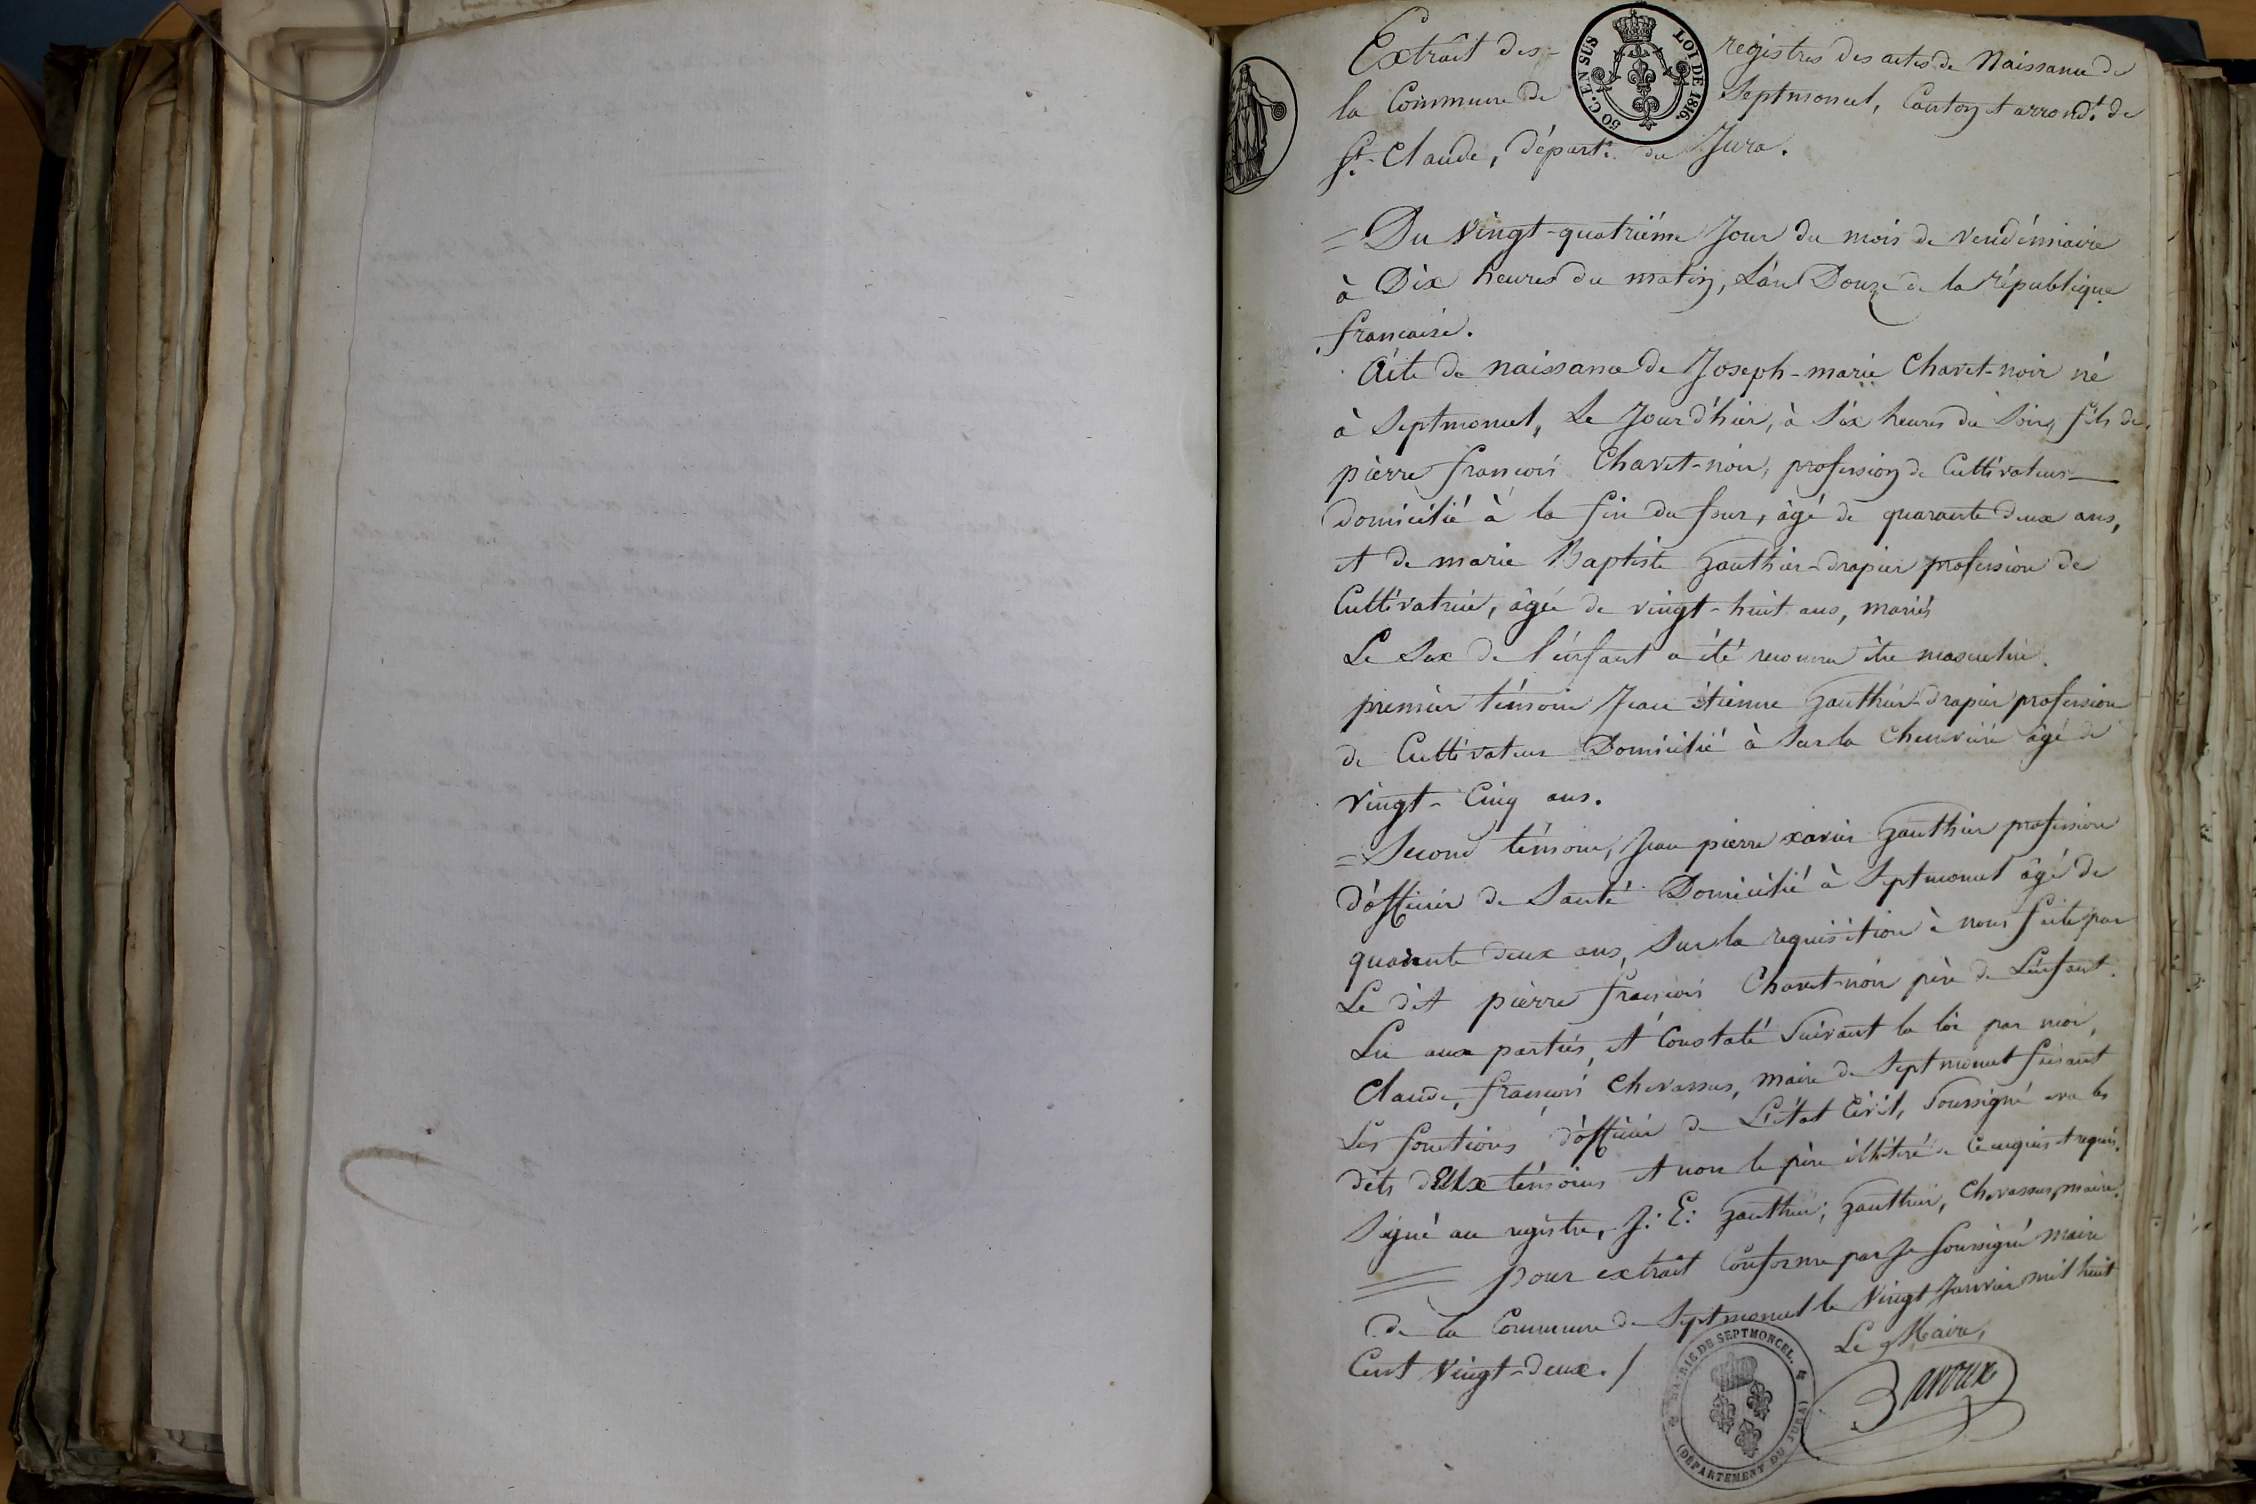 Extrait des registres des actes de Naissance de
la Commune de Septmoncel, Canton et arrondt. de
St. Claude, départt. du Jura.
50 C. EN SUS
LOI DE 1816.
= Du Vingt-quatrième Jour du mois de vendémiaire
à Dix heures du matin, L'an Douze de la république
française.
Acte de naissance de Joseph-marie Chavet-noir né
à Septmoncel, Le Jour d'hier, à Six heures du Soir, fils de
pierre françois Chavet-noir, profession de Cultivateur
domicilié à la fin du four, âgé de quarante deux ans,
et de marie Baptiste Gauthier-drapier profession de
Cultivatrice, âgée de vingt-huit ans, mariés
Le Sex de l'enfant a été reconnu être masculin.
premier témoin Jean étienne Gauthier-drapier profession
de Cultivateur Domicilié à Sur la Cheneviere âgé de
Vingt-Cinq ans.
= Second témoin, Jean pierre xavier Gauthier profession
d'officier de Santé Domicilié à Septmoncel âgé de
quarante deux ans, Sur la requisition à nous faite par
Le dit pierre françois Chavet-noir père de L'enfant.
Lu aux parties, et Constaté Suivant la loi par moi,
Claude, françois Chevassus, maire de Septmoncel faisant
Les fonctions d'officier de L'état Civil, Soussigné avec les
dits deux témoins et non le père illitéré de ce enquis et requis.
Signé au registre, J: E: Gauthier; Gauthier, Chevassus maire.
pour extrait Conforme par Je Soussigné maire
de la Commune de Septmoncel le Vingt Janvier mil huit
Cent Vingt-deux. /
Le Maire,
MAIRIE DE SEPTMONCEL.
(DÉPARTEMENT DU JURA)